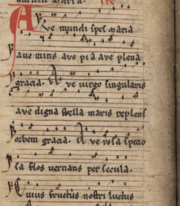 Ave mundi spes maria
aue mitis aue pia aue plena
gracia. Aue virgo singularis
aue digna stella maris
orbem gracia. Aue rosa
flos vernans per secula.
Cuius fructus nostri luctus